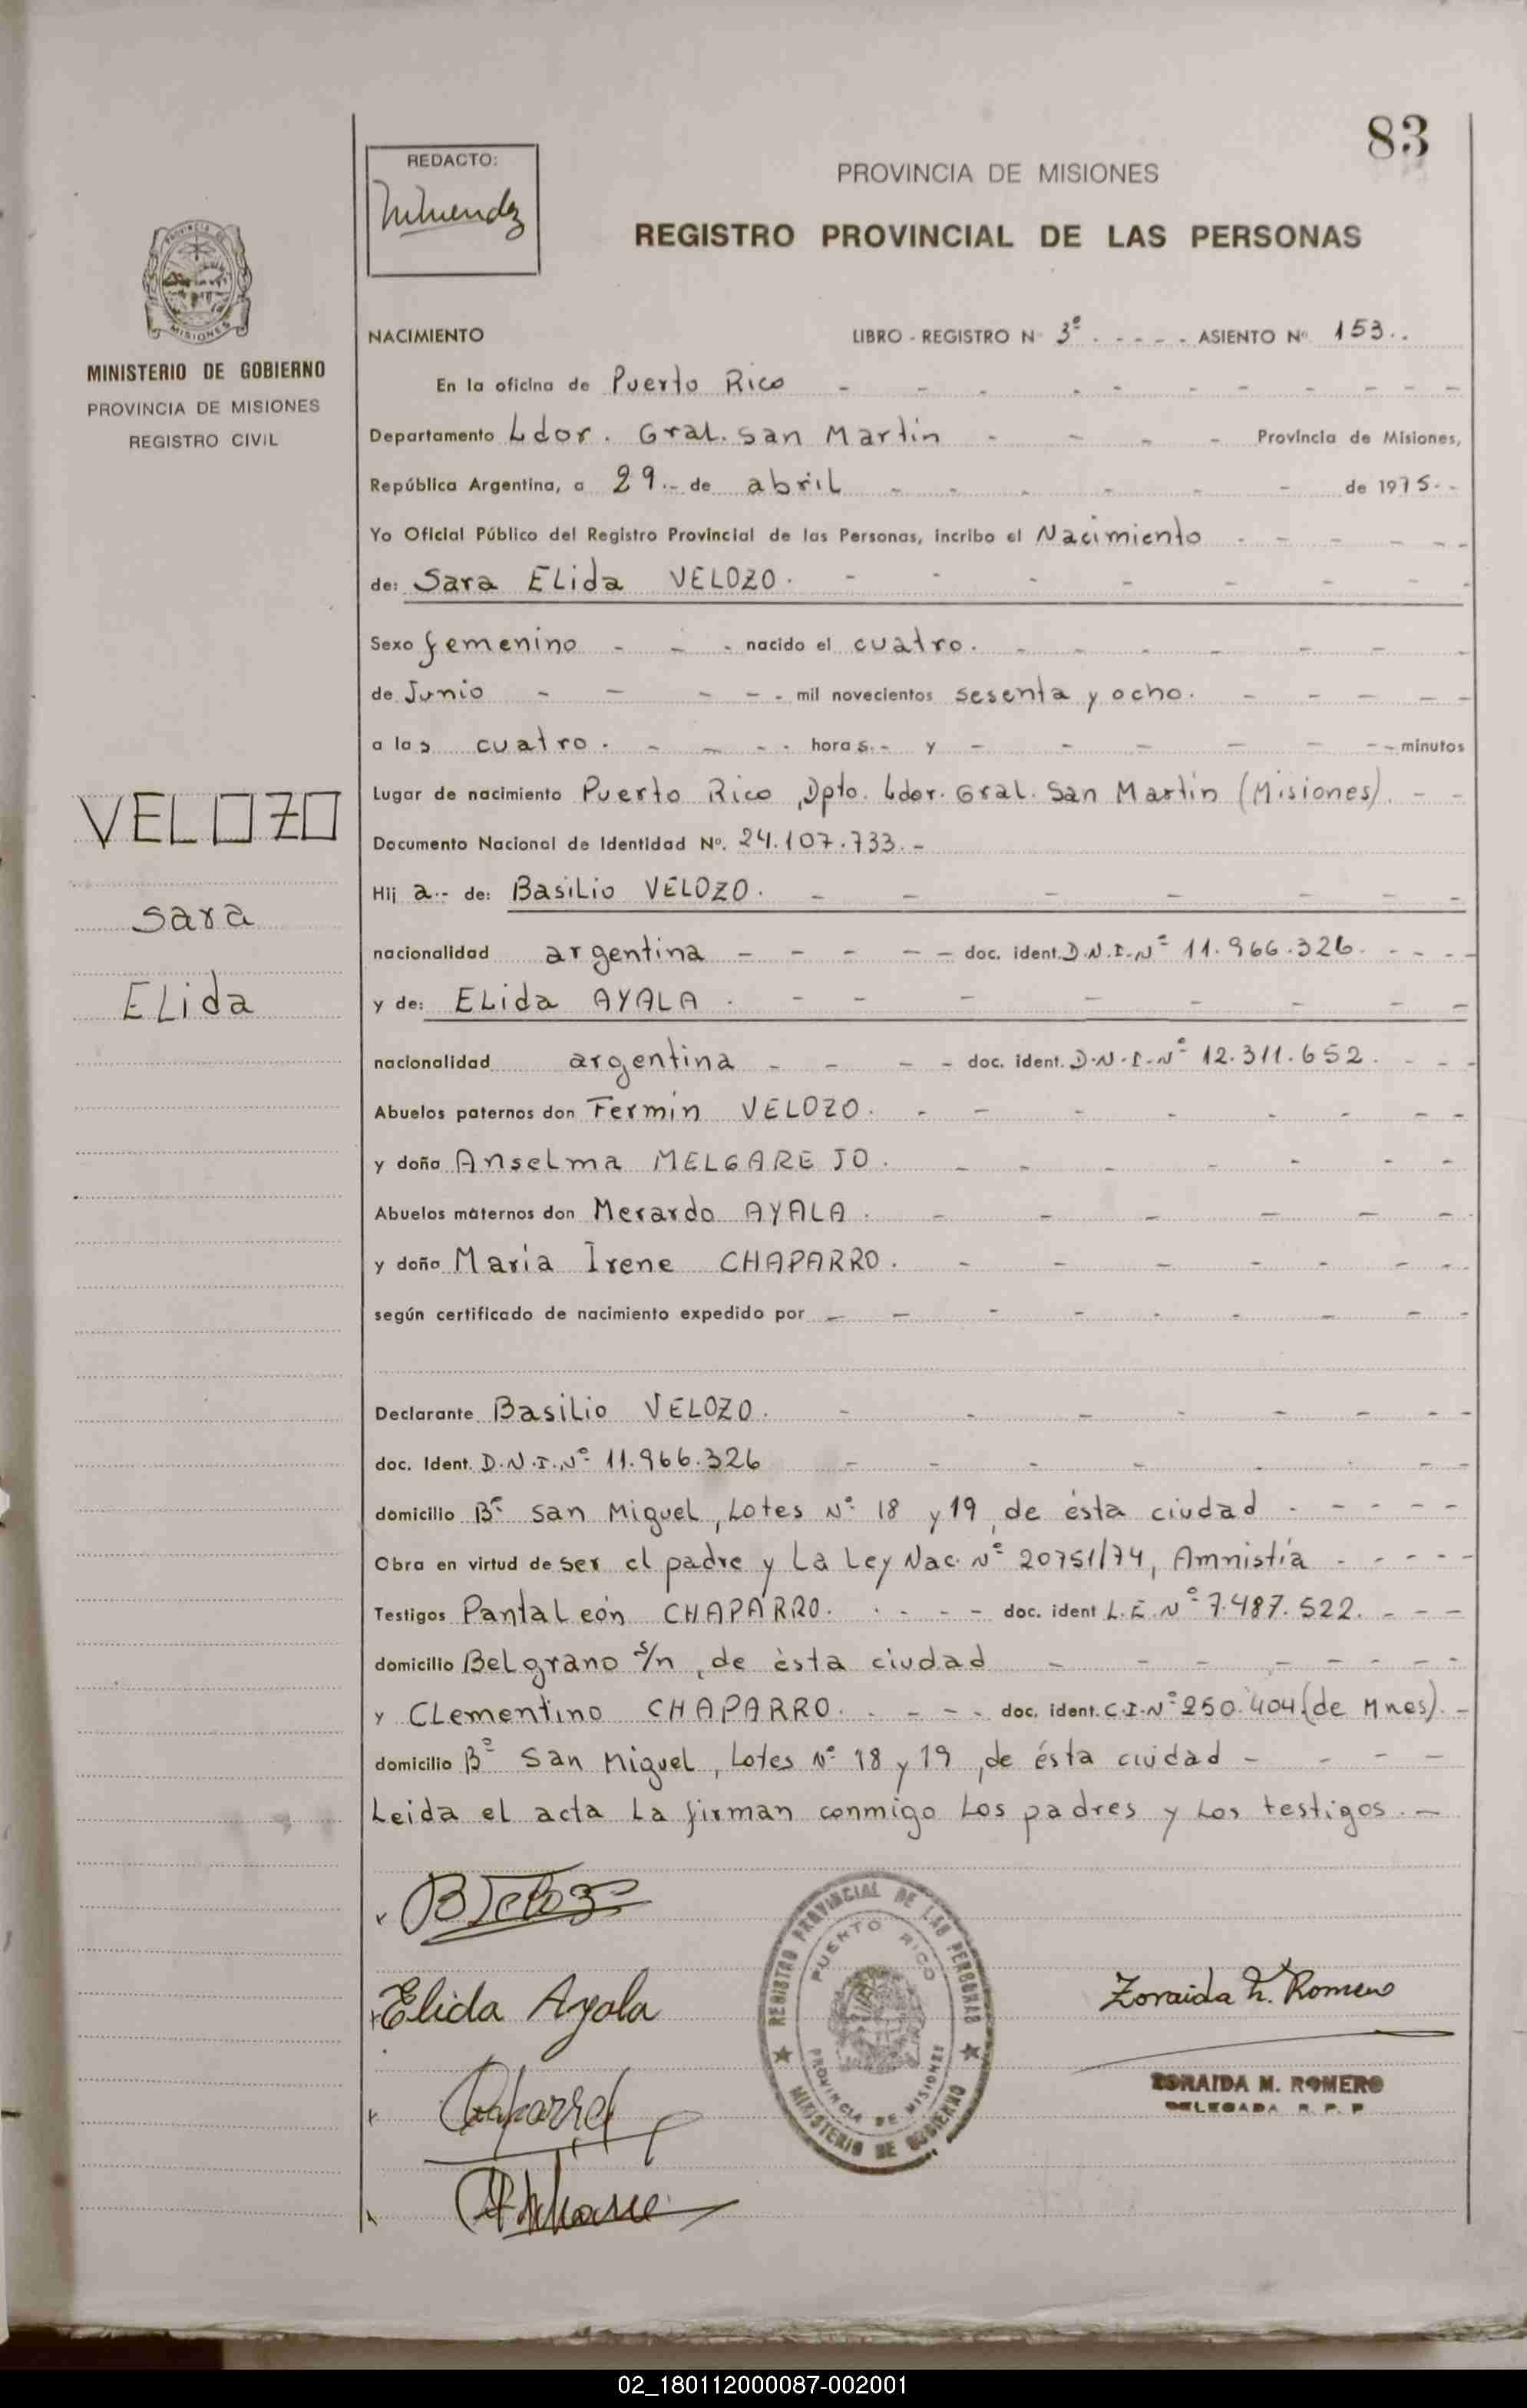 83
REDACTO:
PROVINCIA DE MISIONES
REGISTRO PROVINCIAL DE LAS PERSONAS
PROVINCIA DE
MISIONES
MINISTERIO DE GOBIERNO
PROVINCIA DE MISIONES
REGISTRO CIVIL
NACIMIENTO LIBRO - REGISTRO Nº 3º . - - - - ASIENTO Nº 153..
En la oficina de Puerto Rico - - - - - - - - - - -
Departamento Ldor. Gral. San Martin - - - - Provincia de Misiones,
República Argentina, a 29.- de abril - - - - - - de 1975.-
Yo Oficial Público del Registro Provincial de las Personas, incribo el Nacimiento - - - - - -
de: Sara Elida VELOZO. - - - - - - - -
Sexo femenino - - - nacido el cuatro. - - - - - - -
de Junio - - - - - mil novecientos sesenta y ocho. - - - - -
a las cuatro. - - - - horas.- y - - - - - - - minutos
Lugar de nacimiento Puerto Rico, Dpto. Ldor. Gral. San Martin (Misiones). - -
VELOZO
Sara
Elida
Documento Nacional de Identidad Nº. 24.107.733.-
Hija.- de: Basilio VELOZO. - - - - - - -
nacionalidad argentina - - - - - doc. ident. D.N.I.Nº 11.966.326. - - - -
y de: Elida AYALA. - - - - - - -
nacionalidad argentina - - - - doc. ident. D.N.I.Nº 12.311.652. - - -
Abuelos paternos don Fermin VELOZO. - - - - - - - -
y doña Anselma MELGAREJO. - - - - - - -
Abuelos maternos don Merardo AYALA. - - - - - - -
y doña Maria Irene CHAPARRO. - - - - - - -
según certificado de nacimiento expedido por - - - - - - - - -
Declarante Basilio VELOZO. - - - - - - - -
doc. Ident. D.N.I.Nº 11.966.326 - - - - - - -
domicilio Bº San Miguel, Lotes Nº 18 y 19, de ésta ciudad - - - - -
Obra en virtud de ser el padre y La Ley Nac. Nº 20751/74, Amnistía - - - - -
Testigos Pantaleón CHAPARRO. - - - - doc. ident L.E. Nº 7.487.522. - - -
domicilio Belgrano s/n, de èsta ciudad - - - - - - - -
y Clementino CHAPARRO. - - - - doc. ident. C.I.Nº 250.404 (de Mnes). -
domicilio Bº San Miguel, Lotes Nº 18 y 19, de ésta ciudad - - - -
Leida el acta La firman conmigo Los padres y Los testigos. -
Elida Ayala
REGISTRO PROVINCIAL DE LAS PERSONAS
PUERTO RICO
PROVINCIA DE MISIONES
MINISTERIO DE GOBIERNO
Zoraida M. Romero
ZORAIDA M. ROMERO
DELEGADA R. P. P
02_180112000087-002001